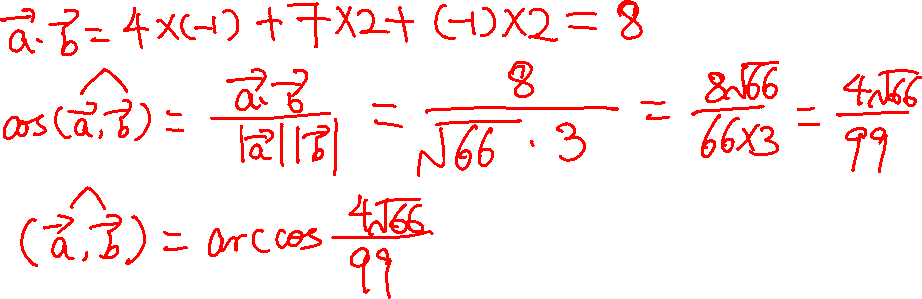 $\vec{a}\cdot\vec{b}=4\times(-1)+7\times2+(-1)\times2=8$
$\cos(\widehat{\vec{a},\vec{b}})=\frac{\vec{a}\cdot\vec{b}}{|\vec{a}||\vec{b}|}=\frac{8}{\sqrt{66}\cdot3}=\frac{8\sqrt{66}}{66\times3}=\frac{4\sqrt{66}}{99}$
$(\widehat{\vec{a},\vec{b}})=\arccos\frac{4\sqrt{66}}{99}$